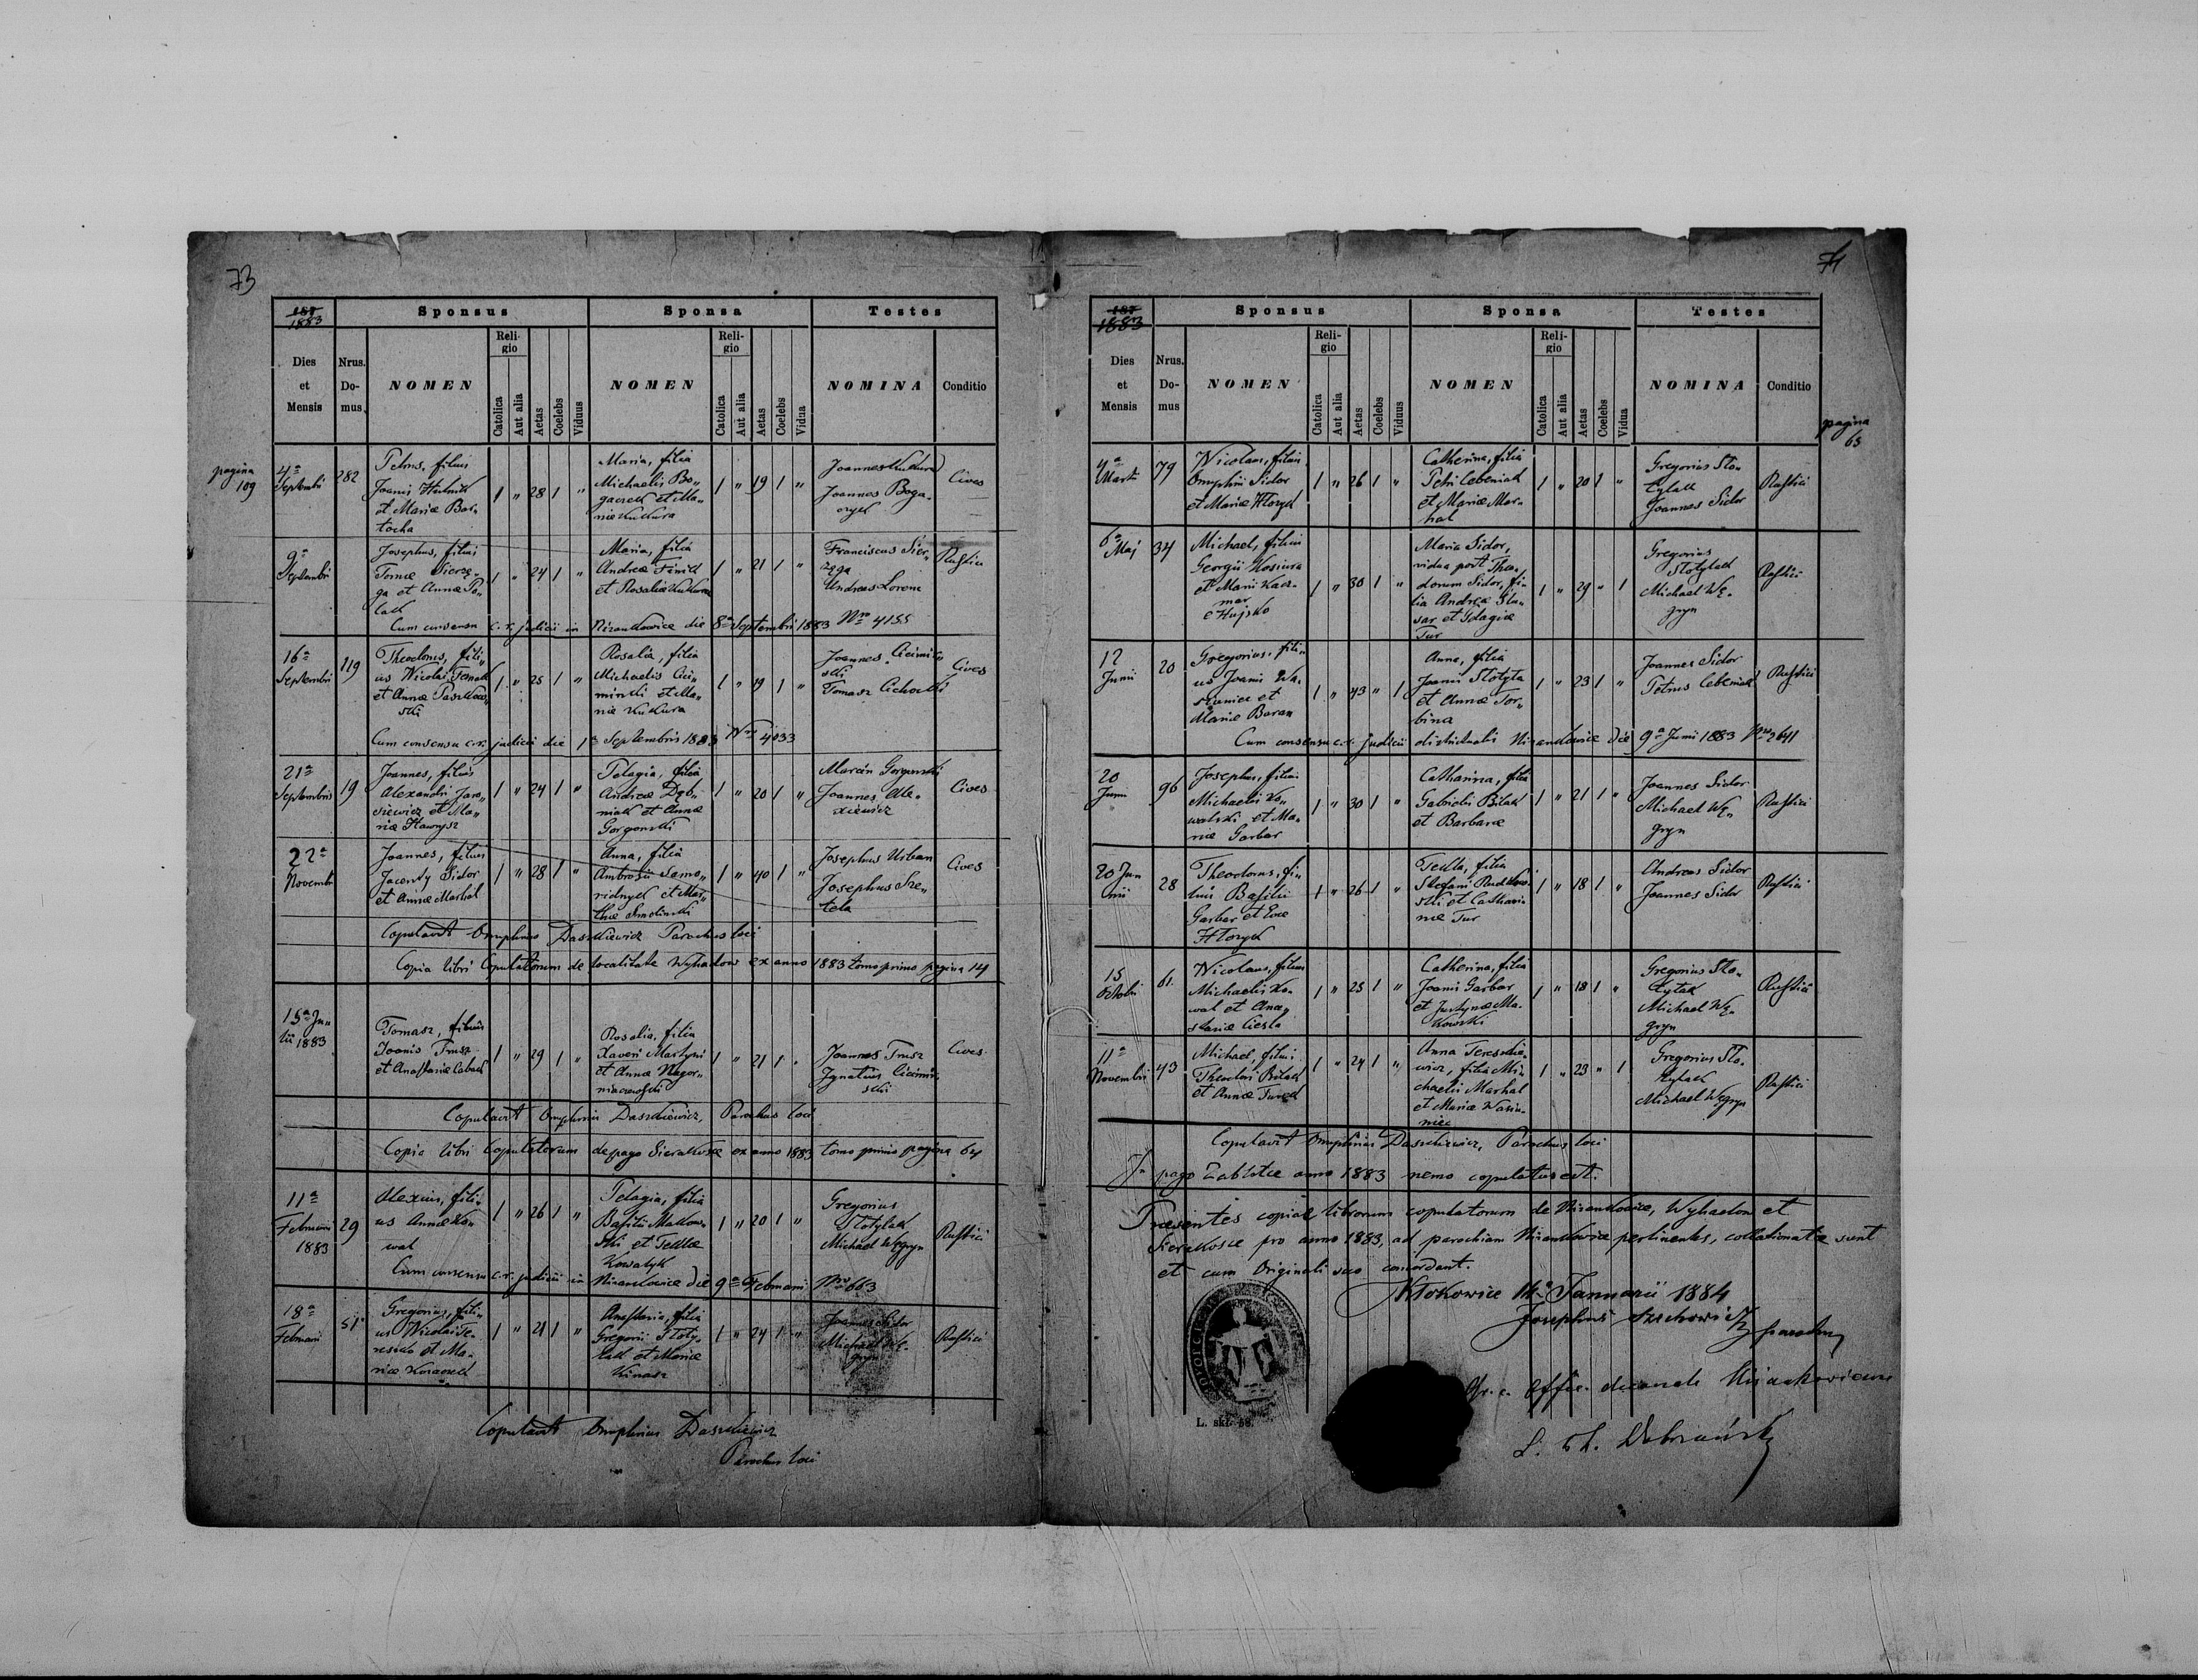 73
187
1883
Sponsus
Sponsa
Testes
Dies et Mensis
Nrus. Domus
NOMEN
Religio
Catolica
Aut alia
Aetas
Coelebs
Viduus
NOMEN
Religio
Catolica
Aut alia
Aetas
Coelebs
Vidua
NOMINA
Conditio
pagina
109
4a
Septembri
282
Petrus, filius
Joanis
et Mariæ Bar„
tocha
1 „ 28 1 „
Maria, filia
Michaelis Bo„
gaczek et Ma„
riæ Kukura
1 „ 19 1 „
Joannes Kukura
Joannes Boga„
Cives
9a
Septembri
Josephus, filius
Tomæ Sierzę„
ga et Annæ Po„
lak
1 „ 24 1 „
Maria, filia
Andreæ
et Rosaliæ Kukura
1 „ 21 1 „
Franciscus Sier„
zęga
Andreas Lorenc
Rustici
Cum consensu c.r. judicii in Nizankowice die 8a Septembris 1883 Nro 4155
16a
Septembri
119
Theodorus, fili„
us Nicolai
et Annæ
ski
1 „ 25 1 „
Rosalia, filia
Michaelis Cici„
miński et Ma„
riæ Kukura
1 „ 19 1 „
Joannes Cicimiń
ski
Tomasz Cichocki
Cives
Cum consensu c.r. judicii die 1a Septembris 1883 Nro 4033
21a
Septembris
19
Joannes, filius
Alexandri Jaro„
siewicz et Ma„
riæ
1 „ 24 1 „
Pelagia, filia
Andreæ Dęb„
niak et Annæ
Gorgonski
1 „ 20 1 „
Marcin Gorgonski
Joannes Ale„
xiewicz
Cives
22a
Novembr
Joannes, filius
Jacenty Sidor
et Annæ Marhal
1 „ 28 1 „
Anna, filia
Ambrosii Samo„
ridnyk et Mar„
thæ Smolinski
1 „ 40 1 „
Josephus Urban
Josephus Sze„
tela
Cives
Copulavit Onuphrius Daszkiewicz Parochus loci
Copia libri Copulatorum de localitate Wyhadow ex anno 1883 tomo primo pagina 14
15a Ju„
lii 1883
Tomasz, filius
Joanis Trusz
et Anastasiæ Cabak
1 „ 29 1 „
Rosalia, filia
Xaveri Martyni
et Annæ Nagor„
1 „ 21 1 „
Joannes Trusz
Ignatius Cicimiń„
ski
Cives
Copulavit Onuphrius Daszkiewicz, Parochus loci
Copia libri Copulatorum de pago Sierakosce ex anno 1883 tomo primo pagina 64
11a
Februarii
1883
29
Alexius, fili„
us Annæ Ko„
wal
1 „ 26 1 „
Pelagia, filia
Basilii Makow„
ski et Teklæ
Kowalyk
1 „ 20 1 „
Gregorius
Stotylak
Michael Węgryn
Rustici
Cum consensu c.r. judicii in Nizankowice die 9a Februarii Nro 663
18a
Februarii
51
Gregorius, fili„
us Nicolai Te„
et Ma„
riæ
1 „ 21 1 „
Anastasia, filia
Gregorii Stoty„
lak et Mariæ
Kinasz
1 „ 24 1 „
Joannes Sidor
Michael Wę„
gryn
Rustici
Copulavit Onuphrius Daszkiewicz
Parochus loci
74
187
1883
Sponsus
Sponsa
Testes
Dies et Mensis
Nrus. Domus
NOMEN
Religio
Catolica
Aut alia
Aetas
Coelebs
Viduus
NOMEN
Religio
Catolica
Aut alia
Aetas
Coelebs
Vidua
NOMINA
Conditio
pagina
65
4a
Marti
79
Nicolaus, filius
Onuphrii Sidor
et Mariæ Htozyk
1 „ 26 1 „
Catherina, filia
Petri Cebeniak
et Mariæ Mar„
hal
1 „ 20 1 „
Gregorius Sto„
tylak
Joannes Sidor
Rustici
6a
Maj
34
Michael, filius
Georgii
et Mariæ Kacz„
mar
1 „ 30 1 „
Maria Sidor,
vidua post Theo„
dorum Sidor, fi„
lia Andreæ Slu„
sar et Pelagiæ
Tur
1 „ 29 „ 1
Gregorius
Stotylak
Michael Wę„
gryn
Rustici
12
Junii
20
Gregorius, fili„
us Joanis Wa„
et
Mariæ Baran
1 „ 43 „ 1
Anna, filia
Joanis Stotyta
et Annæ Tor„
bina
1 „ 23 1 „
Joannes Sidor
Petrus Cebeniak
Rustici
Cum consensu c.r. judicii districtualis Nizankowice die 9a Junii 1883 Nro 2641
20
Junii
96
Josephus, filius
Michaelis Ko„
walski et Ma„
riæ Garbar
1 „ 30 1 „
Catharina, filia
Gabrielis Bilak
et Barbaræ
1 „ 21 1 „
Joannes Sidor
Michael Wę„
gryn
Rustici
20 Jun
nii
28
Theodorus, fi„
lius Basilii
Garbar et Evæ
Htozyk
1 „ 26 1 „
Tekla, filia
Stefani Rudkow„
ski et Cathari„
næ Tur
1 „ 18 1 „
Andreas Sidor
Joannes Sidor
Rustici
15
Octobri
61.
Nicolaus, filius
Michaelis Ko„
wal et Ana„
stasiæ Ciesla
1 „ 25 1 „
Catherina, filia
Joanis Garbar
et Justynæ Ma„
kowski
1 „ 18 1 „
Gregorius Sto„
tylak
Michael Wę„
gryn
Rustici
11a
Novembri
43
Michael, filius
Theodori Bilak
et Annæ Turek
1 „ 24 1 „
Anna Tereszkie„
wicz, filia Mi„
chaelis Marhal
et Mariæ Wasiu„
niec
1 „ 23 „ 1
Gregorius Sto„
tylak
Michael Węgryn
Rustici
Copulavit Onuphrius Daszkiewicz, Parochus loci
In pago Zablotce anno 1883 nemo copulatus est.
Præsentes copiæ librorum copulatorum de Nizankowice, Wyhadow et
Sierakosce pro anno 1883, ad parochiam Nizankowice pertinentes, collationatæ sunt
et cum Originali suo concordant.
Kłokowice 14a Januarii 1884
Josephus
parochus
Gr. c. Offic. decanale
L. skł. 58.